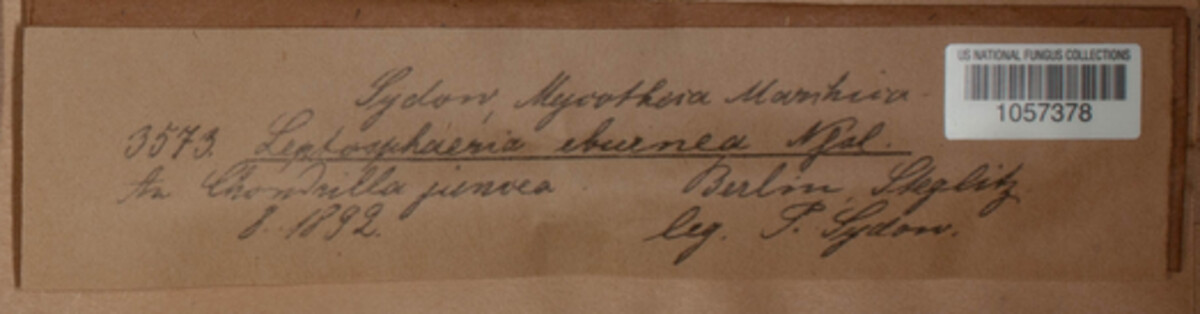 US NATIONAL FUNGUS COLLECTIONS
1057378
Sydow, Mycotheca Marchica
3573. Leptosphaeria eburnea Nssl.
An Chondrilla juncea Berlin, Steglitz
8. 1892. leg. P. Sydow.